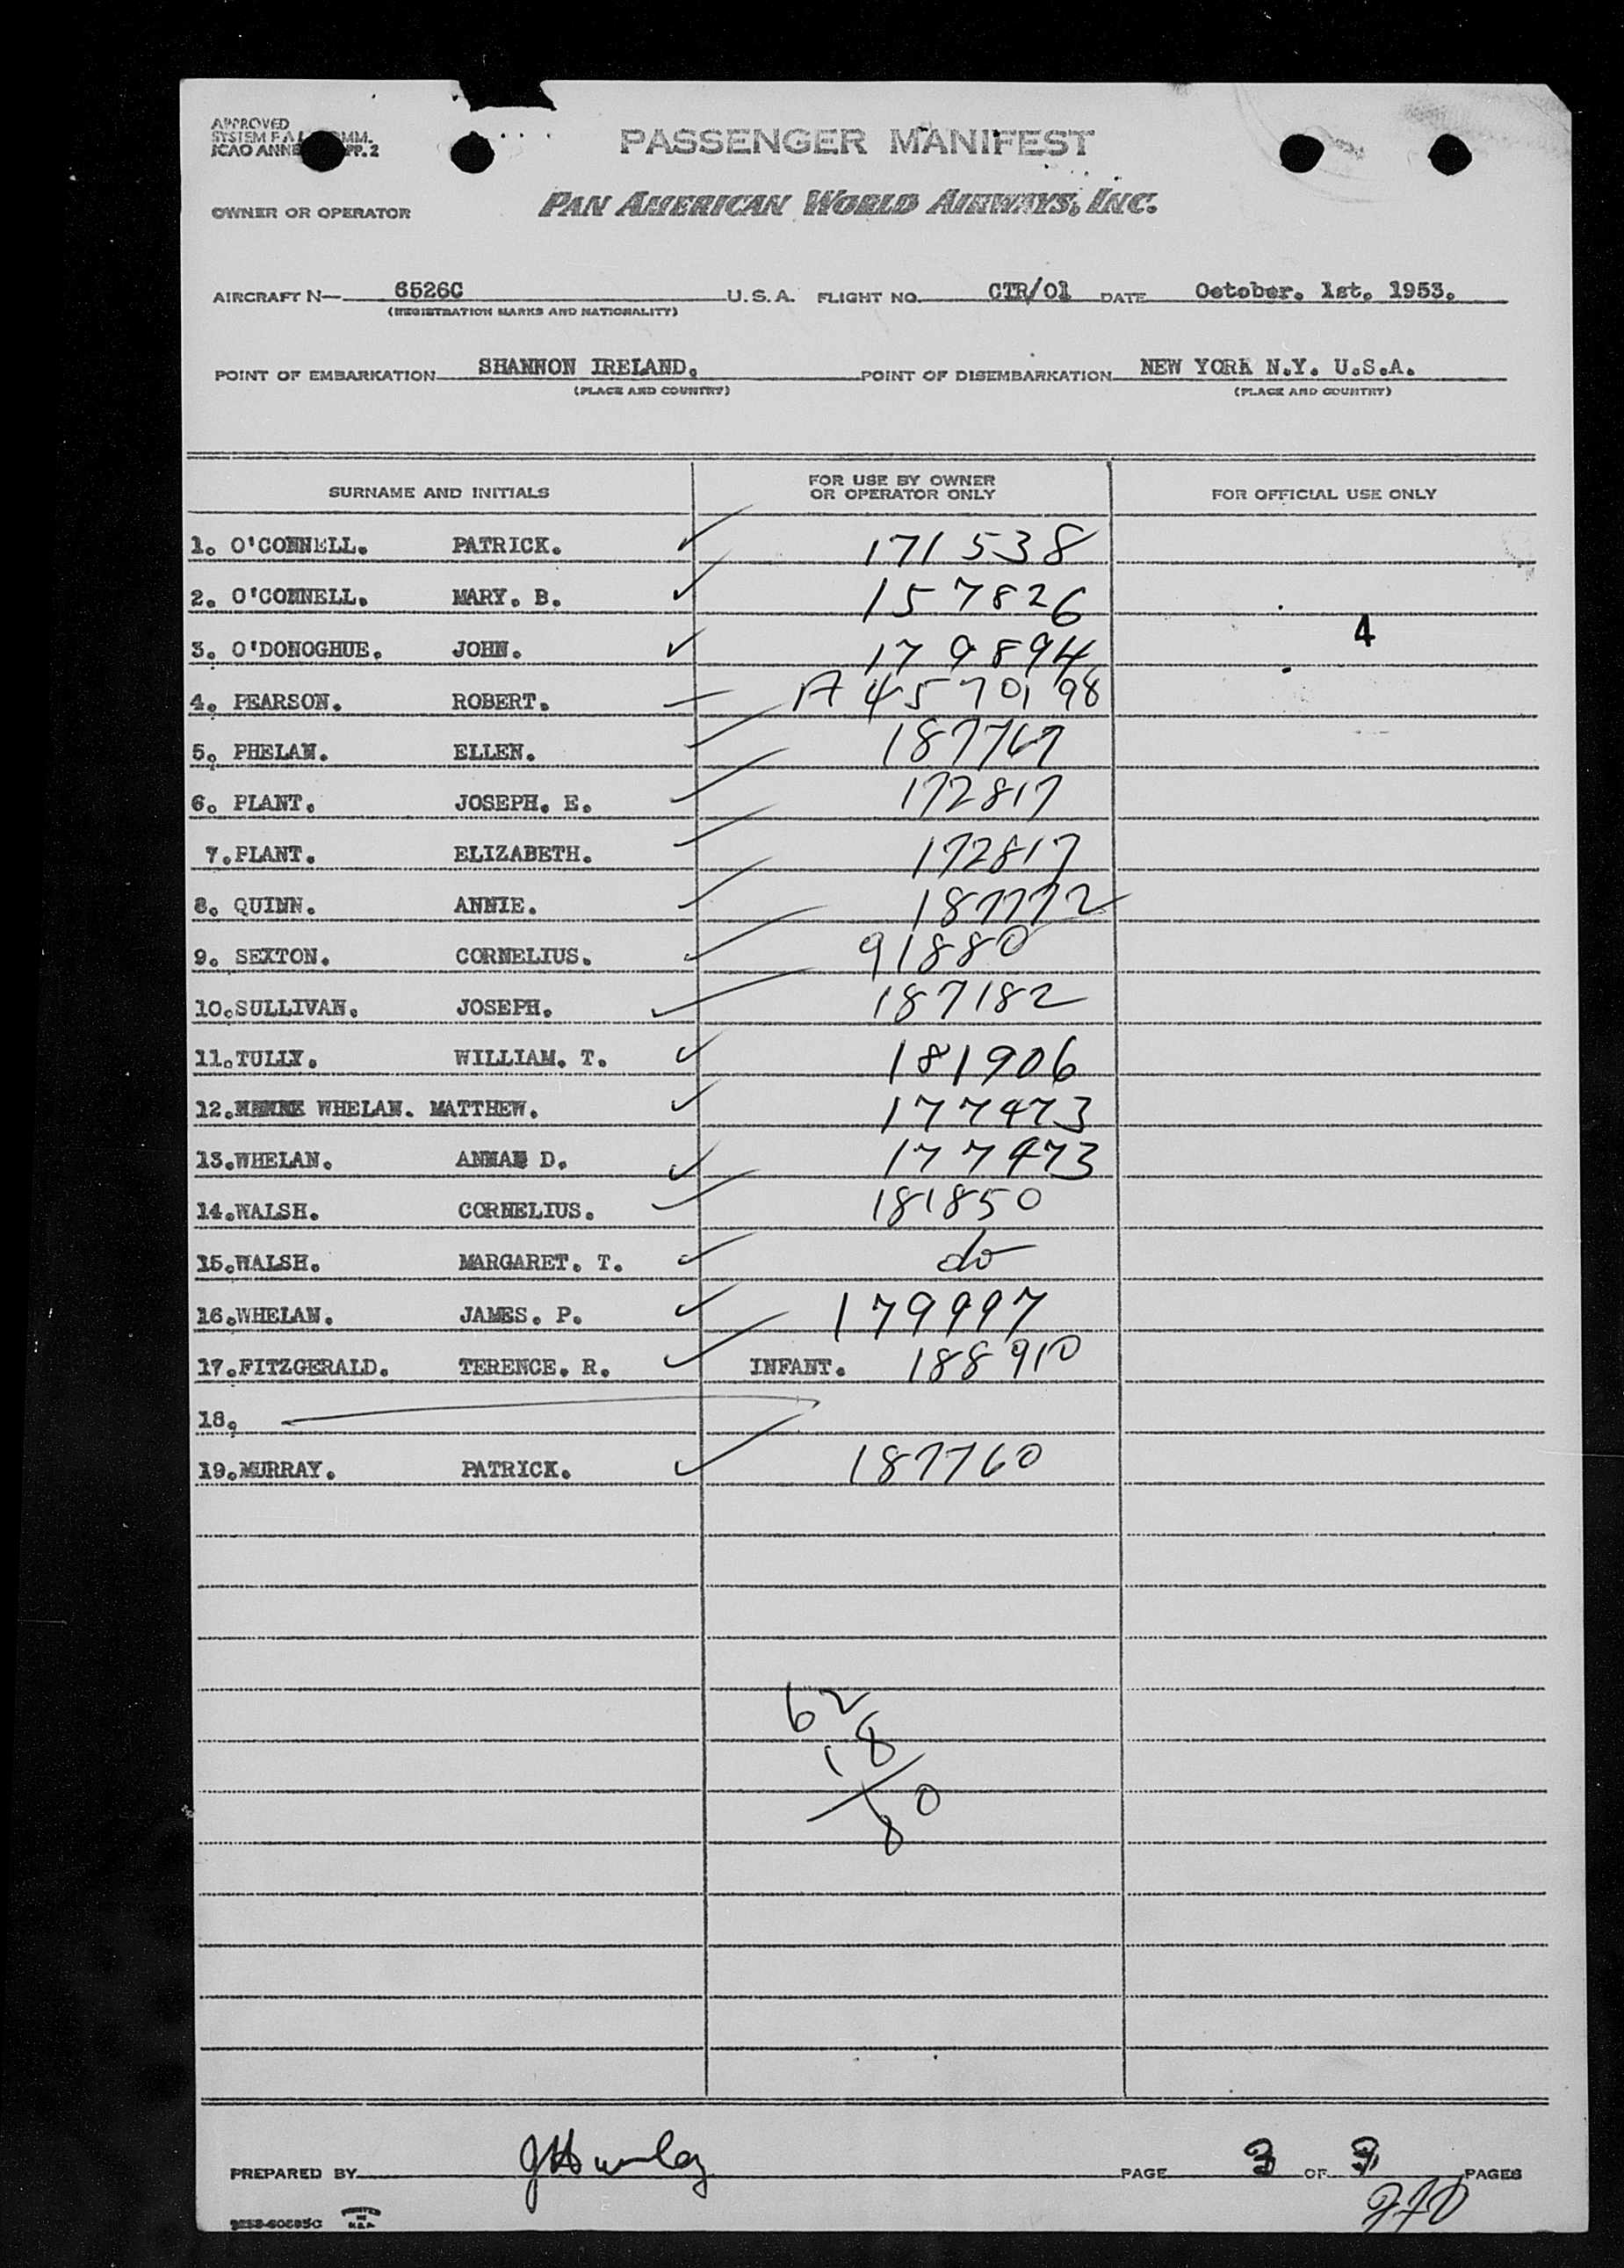 APPROVED
SYSTEM F.A.L. COMM.
ICAO ANNE PP. 2
PASSENGER MANIFEST
OWNER OR OPERATOR PAN AMERICAN WORLD AIRWAYS, INC.
AIRCRAFT N— 6526C U.S.A. FLIGHT NO. CTR/01 DATE October. 1st. 1953.
(REGISTRATION MARKS AND NATIONALITY)
POINT OF EMBARKATION SHANNON IRELAND. POINT OF DISEMBARKATION NEW YORK N.Y. U.S.A.
(PLACE AND COUNTRY) (PLACE AND COUNTRY)
SURNAME AND INITIALS FOR USE BY OWNER OR OPERATOR ONLY FOR OFFICIAL USE ONLY
1. O'CONNELL. PATRICK. ✓ 171538
2. O'CONNELL. MARY. B. ✓ 157826
4
3. O'DONOGHUE. JOHN. ✓ 179894
4. PEARSON. ROBERT. A 4570198
5. PHELAN. ELLEN. 187767
6. PLANT. JOSEPH. E. 172817
7. PLANT. ELIZABETH. 172817
8. QUINN. ANNIE. 187772
9. SEXTON. CORNELIUS. ✓ 91880
10. SULLIVAN. JOSEPH. ✓ 187182
11. TULLY. WILLIAM. T. ✓ 181906
12. WHELAN. MATTHEW. ✓ 177473
13. WHELAN. ANNA D. ✓ 177473
14. WALSH. CORNELIUS. ✓ 181850
15. WALSH. MARGARET. T. ✓ do
16. WHELAN. JAMES. P. ✓ 179997
17. FITZGERALD. TERENCE. R. ✓ INFANT. 188910
18.
19. MURRAY. PATRICK. ✓ 187760
62
18
80
PREPARED BY PAGE 3 OF 3 PAGES
PRINTED IN U.S.A.